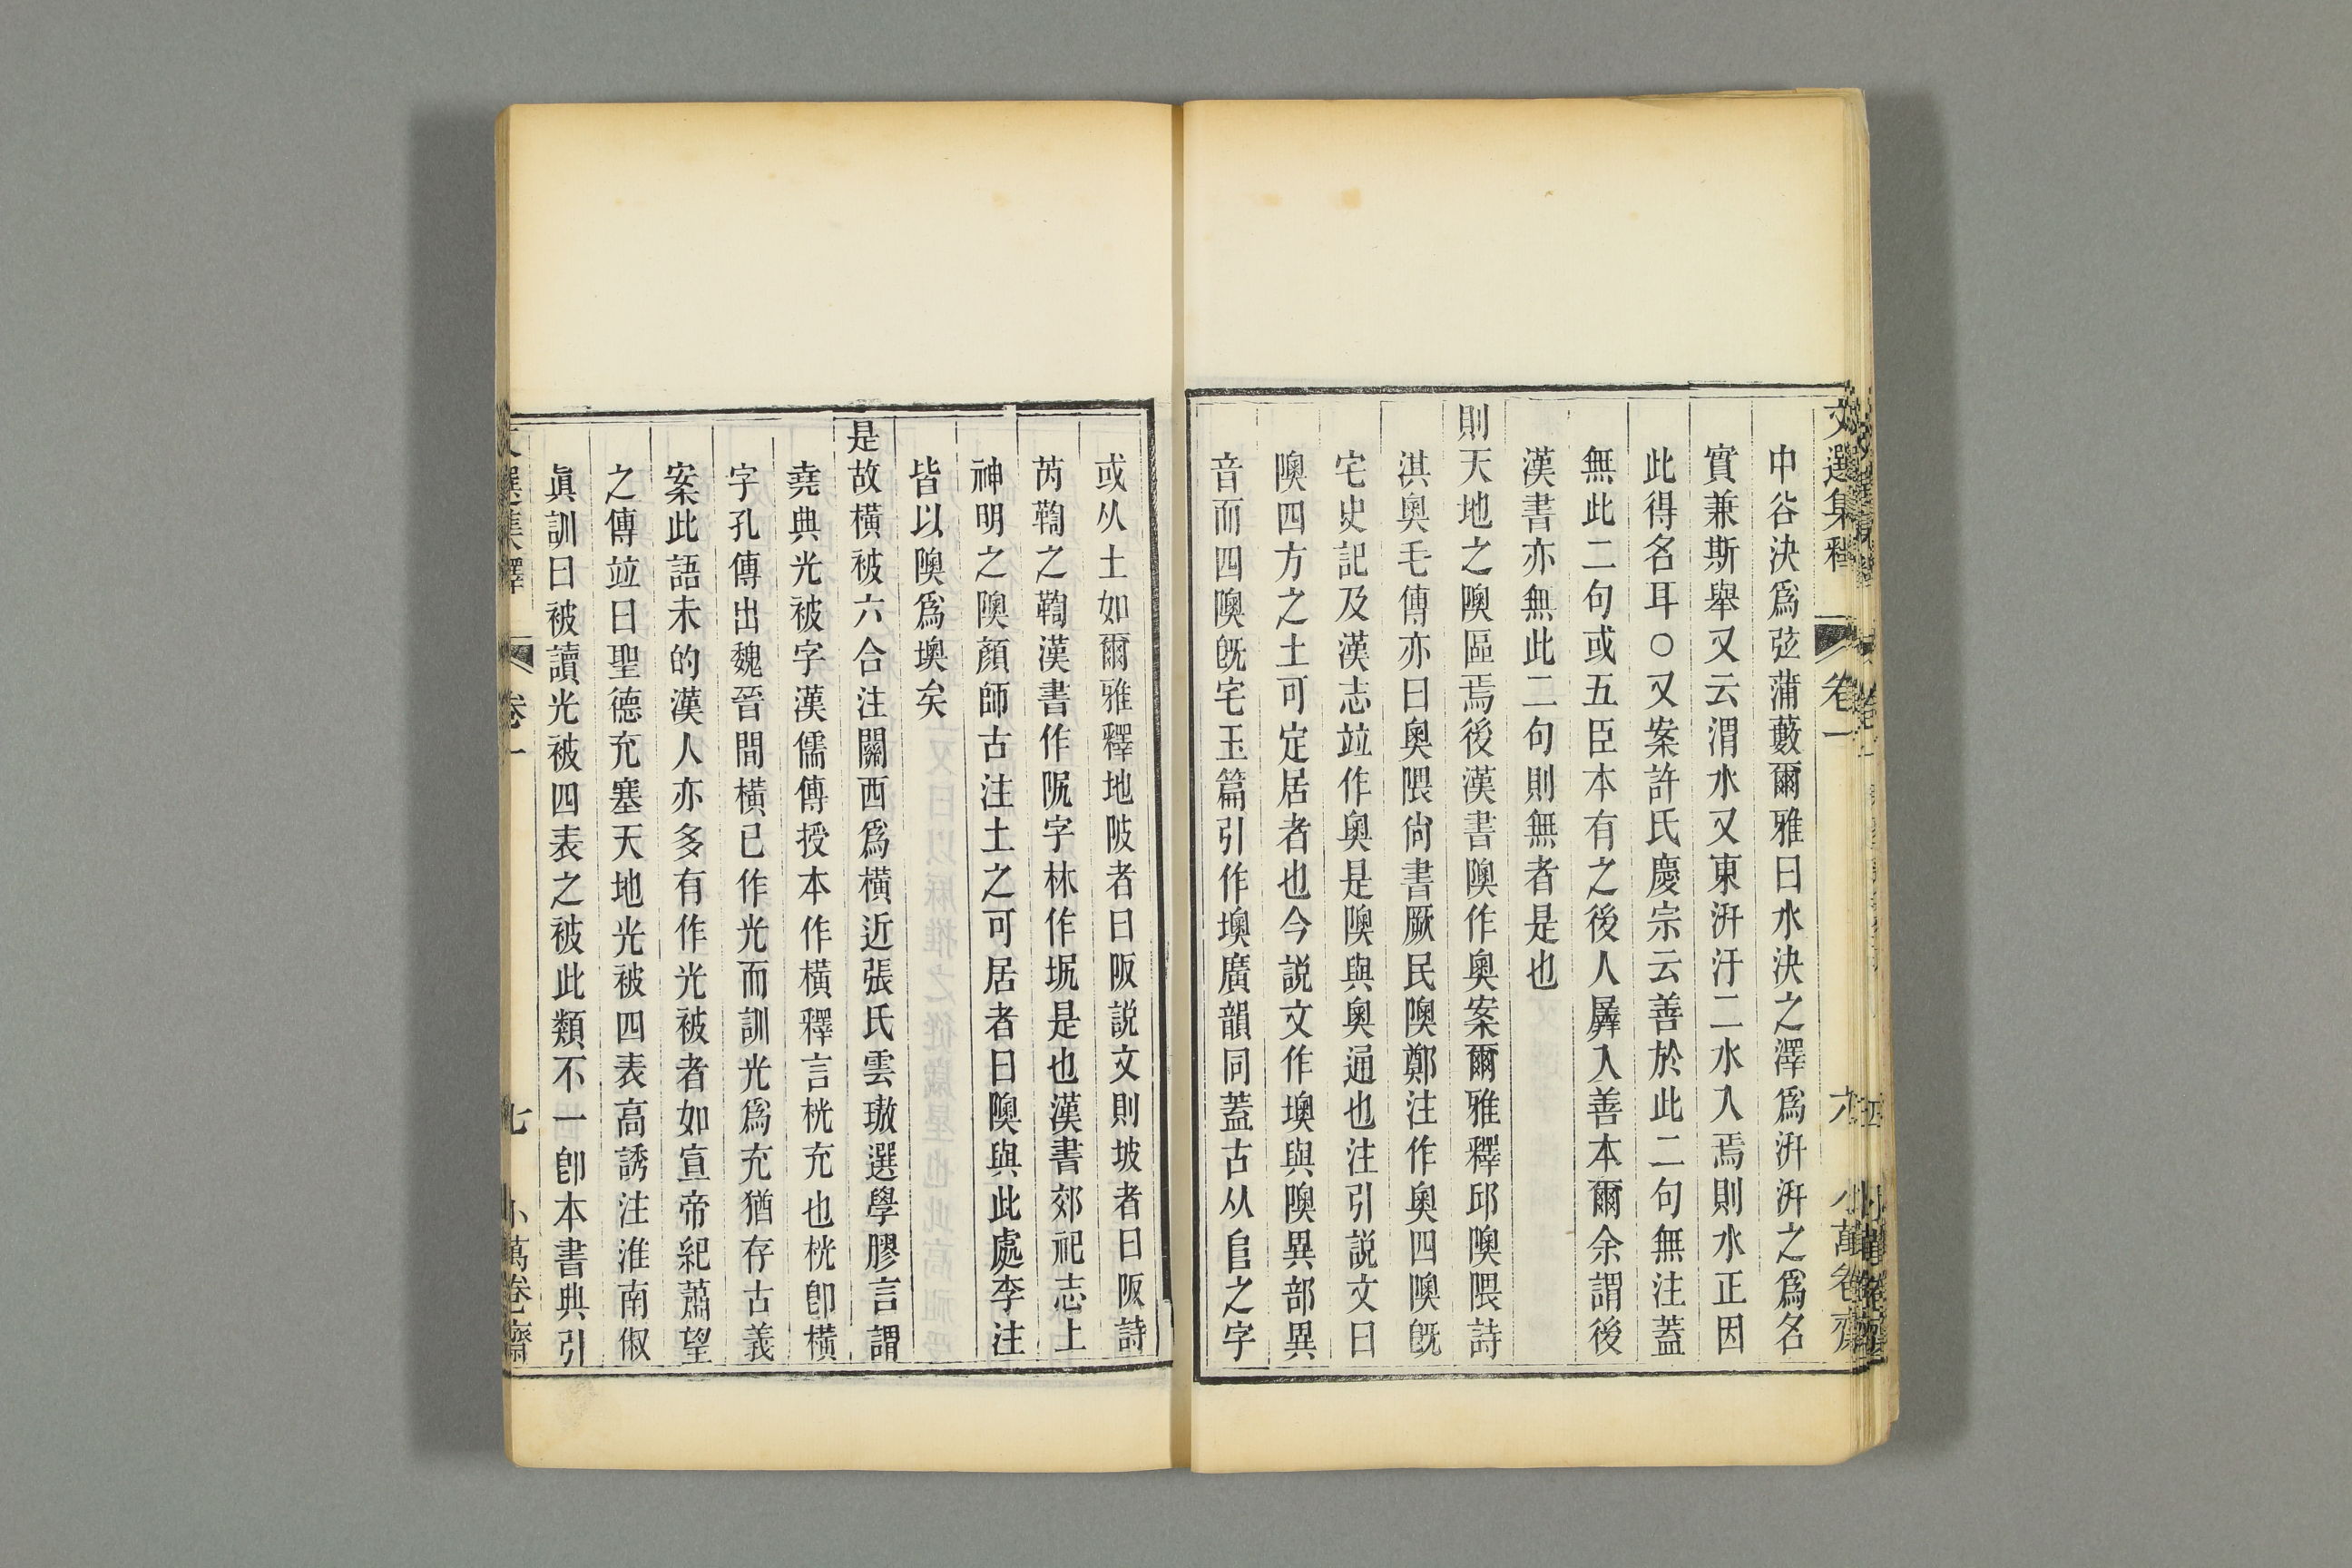 文選集釋 卷一 六 小萬卷齋
中谷決爲弦蒲藪爾雅曰水決之澤爲汧汧之爲名
實兼斯舉又云渭水又東汧汙二水入焉則水正因
此得名耳○又案許氏慶宗云善於此二句無注蓋
無此二句或五臣本有之後人羼入善本爾余謂後
漢書亦無此二句則無者是也
則天地之隩區焉後漢書隩作奧案爾雅釋邱隩隈詩
淇奧毛傳亦曰奧隈尙書厥民隩鄭注作奧四隩旣
宅史記及漢志竝作奧是隩與奧通也注引説文曰
隩四方之土可定居者也今説文作墺與隩異部異
音而四隩旣宅玉篇引作墺廣韻同蓋古从𨸏之字
或从土如爾雅釋地陂者曰阪説文則坡者曰阪詩
芮鞫之鞫漢書作阮字林作坭是也漢書郊祀志上
神明之隩顏師古注土之可居者曰隩與此處李注
皆以隩爲墺矣
是故橫被六合注關西爲橫近張氏雲璈選學膠言謂
堯典光被字漢儒傳授本作橫釋言桄充也桄卽橫
字孔傳出魏晉間橫已作光而訓光爲充猶存古義
案此語未的漢人亦多有作光被者如宣帝紀蕭望
之傳竝曰聖德充塞天地光被四表高誘注淮南俶
眞訓曰被讀光被四表之被此類不一卽本書典引
文選集釋 卷一 七 小萬卷齋